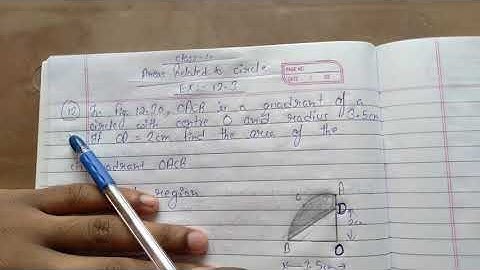 Class-10
Areas Related to circle
Ex:- 12.3
PAGE NO.
DATE
12 In fig. 12.30, OACB is a quadrant of a
circle with centre O and radius 3.5cm
If OD = 2cm find the area of the
quadrant OACB
region
A
C
D
2cm
B
O
3.5cm